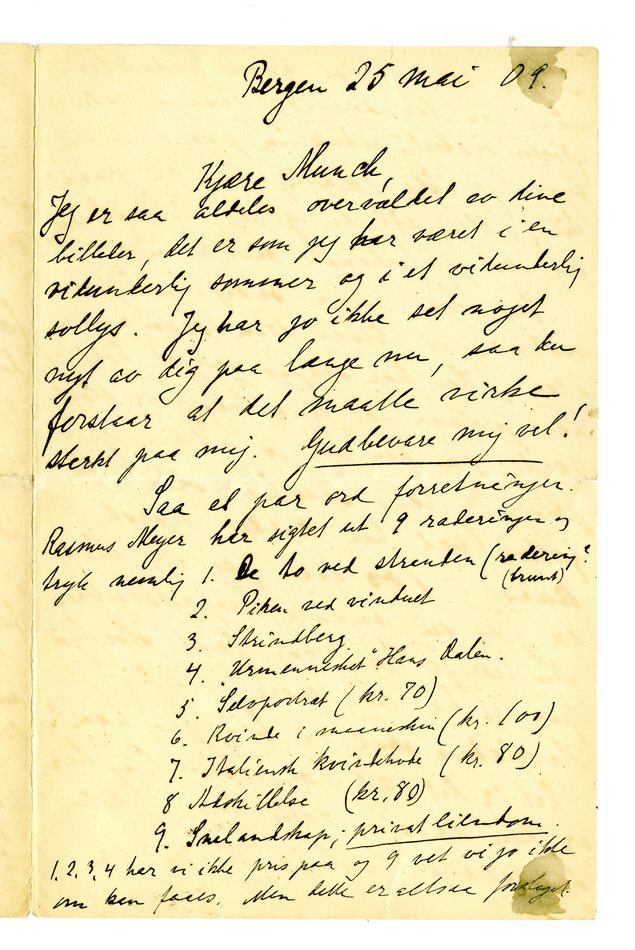 Bergen 25 mai 09.
Kjære Munch,
Jeg er saa aldeles overvældet av dine
billeder, det er som jeg har været i en
vidunderlig sommer og i et vidunderlig
sollys. Jeg har jo ikke set noget
nyt av dig paa længe nu, saa du
forstaar at det maatte virke
sterkt paa mig. Gudbevare mig vel!
Saa et par ord forretninger.
Rasmus Meyer har sigtet ut 9 raderinger og
tryk nemlig 1. De to ved stranden (radering?
(brunt)
2. Piken ved vinduet
3. Strindberg
4. „Urmennesket" Hans Dalen.
5. Selvportræt (kr. 70)
6. Kvinde i maaneskin (kr. 100)
7. Italiensk kvindehode (kr. 80)
8 Adskillelse (kr. 80)
9. Snelandskap; privat eiendom.
1, 2, 3, 4 har vi ikke pris paa og 9 vet vi jo ikke
om kan faaes. Men dette er altsaa forslaget.